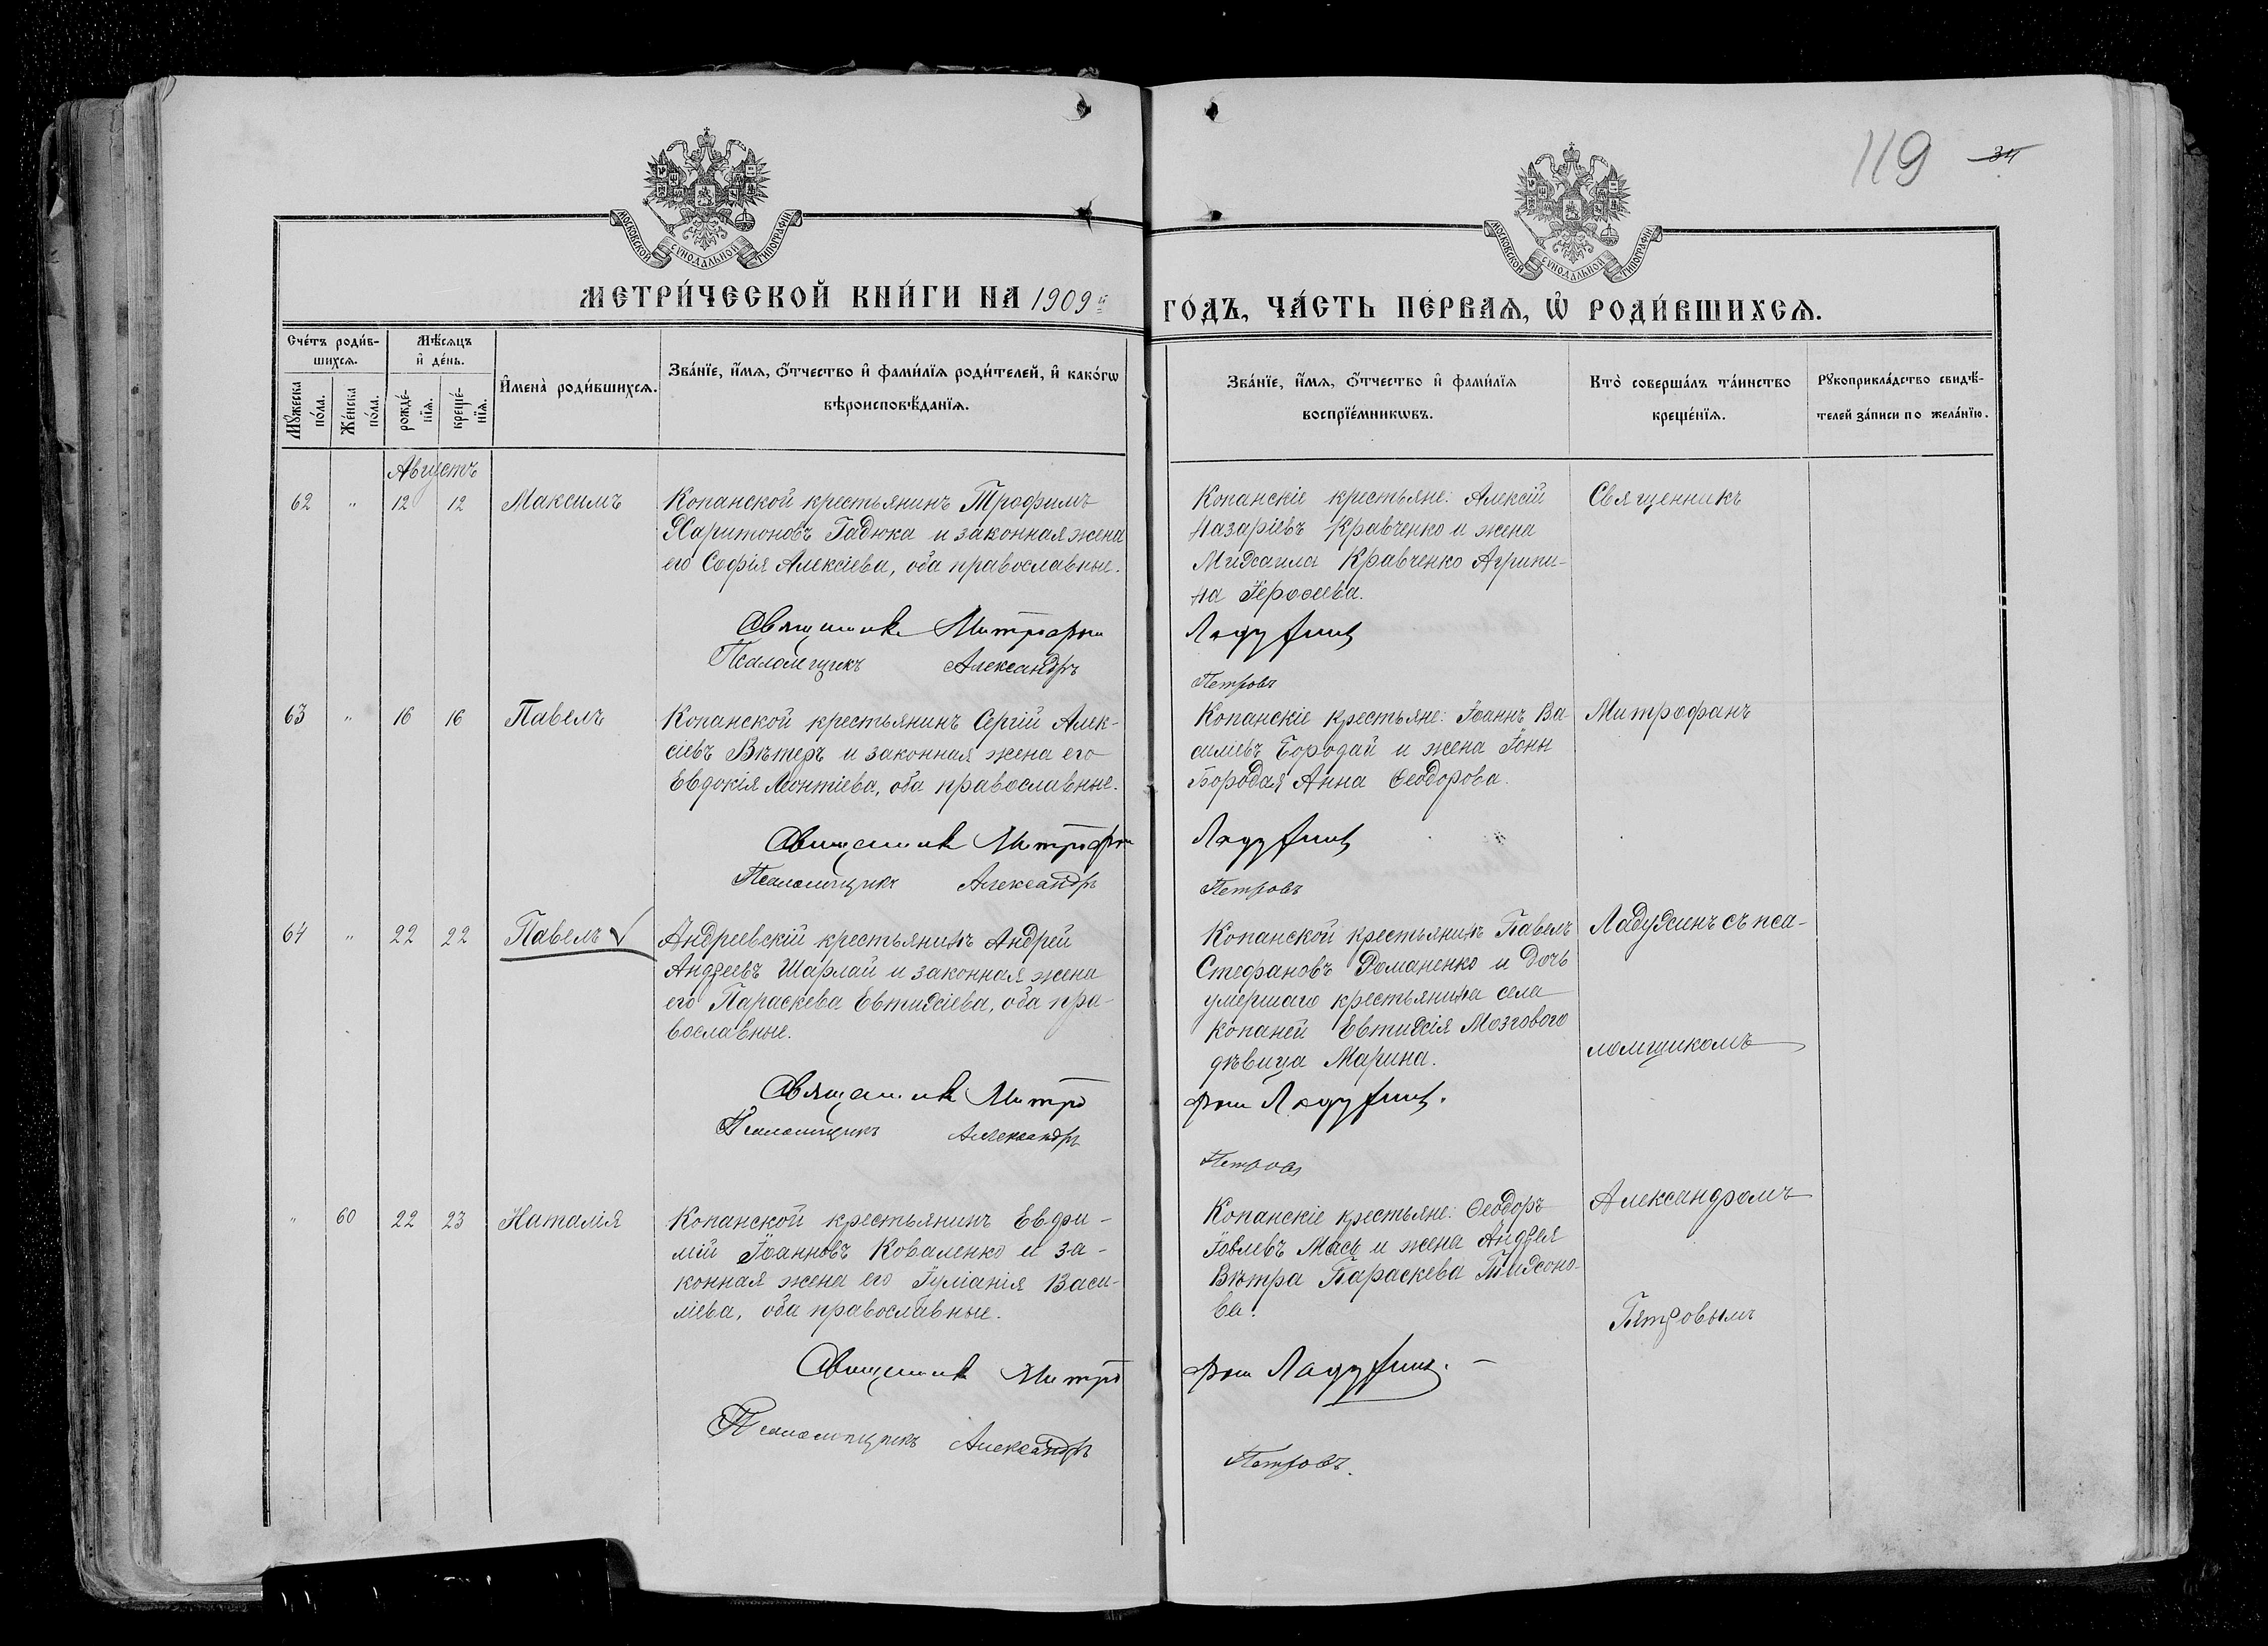 119 34
МОСКОВСКОЙ СѴНОДАЛЬНОЙ ТИПОГРАФІИ
МОСКОВСКОЙ СѴНОДАЛЬНОЙ ТИПОГРАФІИ
МЕТРИ́ЧЕСКОЙ КНИ́ГИ НА 1909й
ГО́ДЪ, ЧА́СТЬ ПЕ́РВАѦ, Ѡ҆ РОДИ́ВШИХСѦ.
Сче́тъ роди́в-
шихсѧ.
Мꙋ́жеска
по́ла.
Же́нска
по́ла.
Мѣ́сѧцъ
и҆ де́нь.
рожде́-
нїѧ.
креще́-
нїѧ.
И҆мена̀ роди́вшихсѧ.
Зва́нїе, и҆́мѧ, ѻ҆́тчество и҆ фами́лїѧ роди́телей, и҆ како́гѡ
вѣроисповѣ́данїѧ.
Зва́нїе, и҆́мѧ, ѻ҆́тчество и҆ фами́лїѧ
воспрїе́мникѡвъ.
Кто̀ соверша́лъ та́инство
креще́нїѧ.
Рꙋкоприкла́дство свидѣ́-
телей за́писи по жела́нїю.
Августъ
62 " 12 12 Максимъ
Копанской крестьянинъ Трофимъ
Харитоновъ Гадюка и законная жена
его Софія Алексіева, оба православные.
Священникъ Митрофанъ
Псаломщикъ Александръ
Копанскіе крестьяне: Алексій
Назаріевъ Кравченко и жена
Михаила Кравченко Агрипи-
на Герасеева.
Ладухинъ
Петровъ
Священникъ
63 " 16 16 Павелъ
Копанской крестьянинъ Сергій Алек-
сіевъ Вѣтеръ и законная жена его
Евдокія Леонтіева, оба православные.
Священникъ Митрофанъ
Псаломщикъ Александръ
Копанскіе крестьяне: Іоаннъ Ва-
силіевъ Бородай и жена Іоны
Бородая Анна Ѳеодорова.
Ладухинъ
Петровъ
Митрофанъ
64 " 22 22 Павелъ
Андреевскій крестьянинъ Андрей
Андреевъ Шарлай и законная жена
его Параскева Евтихіева, оба пра-
вославные.
Священникъ Митро
Псаломщикъ Александръ
Копанской крестьянинъ Павелъ
Стефановъ Романенко и дочь
умершаго крестьянина села
Копаней Евтихія Мозгового
дѣвица Марина.
фанъ Ладухинъ.
Петровъ
Ладухинъ съ пса-
ломщикомъ
" 60 22 23 Наталія
Копанской крестьянинъ Евфи-
мій Іоанновъ Коваленко и за-
конная жена его Іуліанія Васи-
ліева, оба православные.
Священникъ Митро
Псаломщикъ Александръ
Копанскіе крестьяне: Ѳеодоръ
Іовлевъ Мась и жена Андрея
Вѣтра Параскева Тихоно-
ва.
фанъ Ладухинъ.
Петровъ.
Александромъ
Петровымъ